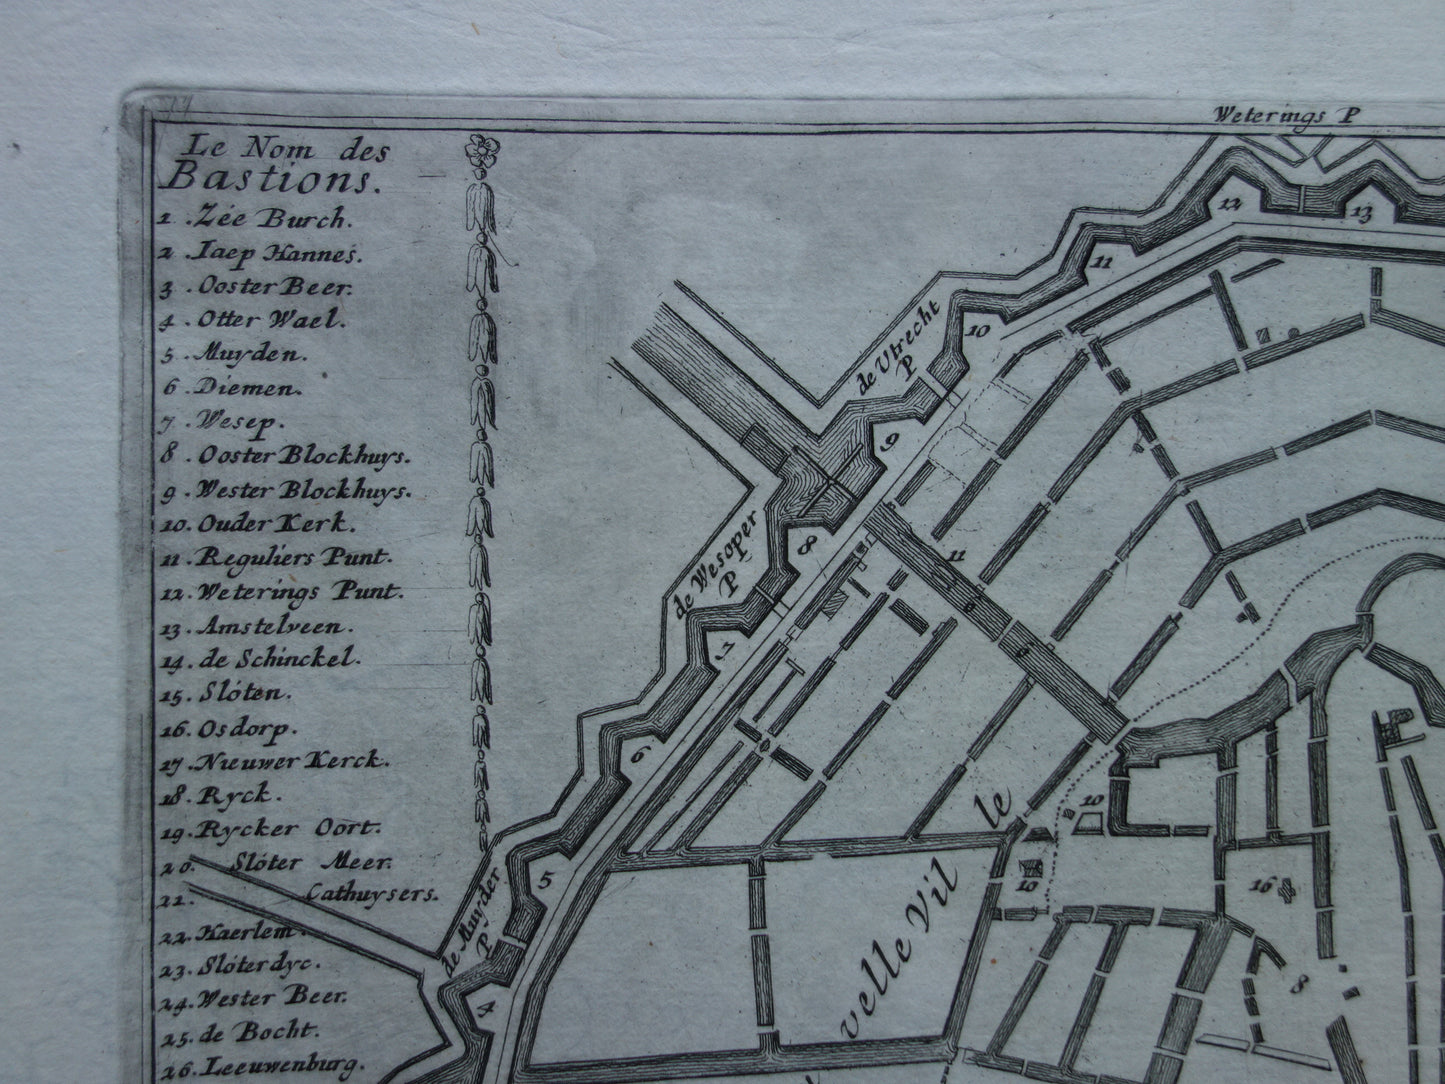 Le Nom des
Bastions.
1 . Zée Burch.
2 . Iaep Hannes.
3 . Ooster Beer.
4 . Otter Wael.
5 . Muyden.
6 . Diemen.
7 . Wesep.
8 . Ooster Blockhuys.
9 . Wester Blockhuys.
10. Ouder Kerk.
11. Reguliers Punt.
12. Weterings Punt.
13. Amstelveen.
14. de Schinckel.
15. Slóten.
16. Osdorp.
17. Nieuwer Kerck.
18. Ryck.
19. Rycker Oort.
20. Slóter Meer.
21. Cathuysers.
22. Haerlem.
23. Slóterdyc.
24. Wester Beer.
25. de Bocht.
26. Leeuwenburg.
Weterings P
12
13
11
10
de Utrecht
P
9
de Wesoper
P
8
7
6
5
de Muyder
P
4
11
10
10
16
8
velle Vil
le